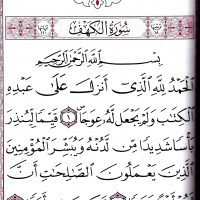 سُورَةُ الكَهْفِ
بِسْمِ اللَّهِ الرَّحْمَٰنِ الرَّحِيمِ
الْحَمْدُ لِلَّهِ الَّذِي أَنزَلَ عَلَىٰ عَبْدِهِ
الْكِتَٰبَ وَلَمْ يَجْعَل لَّهُۥ عِوَجَا ۜ ١ قَيِّمًا لِّيُنذِرَ
بَأْسًا شَدِيدًا مِّن لَّدُنْهُ وَيُبَشِّرَ الْمُؤْمِنِينَ
الَّذِينَ يَعْمَلُونَ الصَّٰلِحَٰتِ أَنَّ